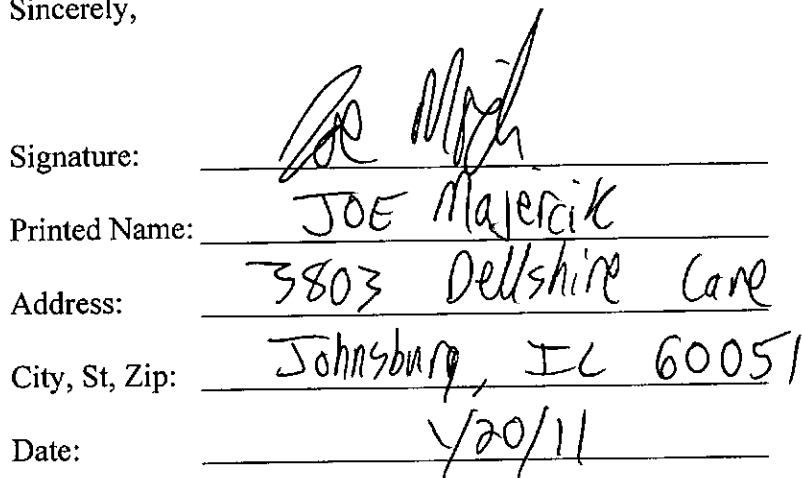 Sincerely,
Signature: Joe
Printed Name: JOE Majercik
Address: 3803 Dellshire Lane
City, St, Zip: Johnsburg, IL 60051
Date: /20/11